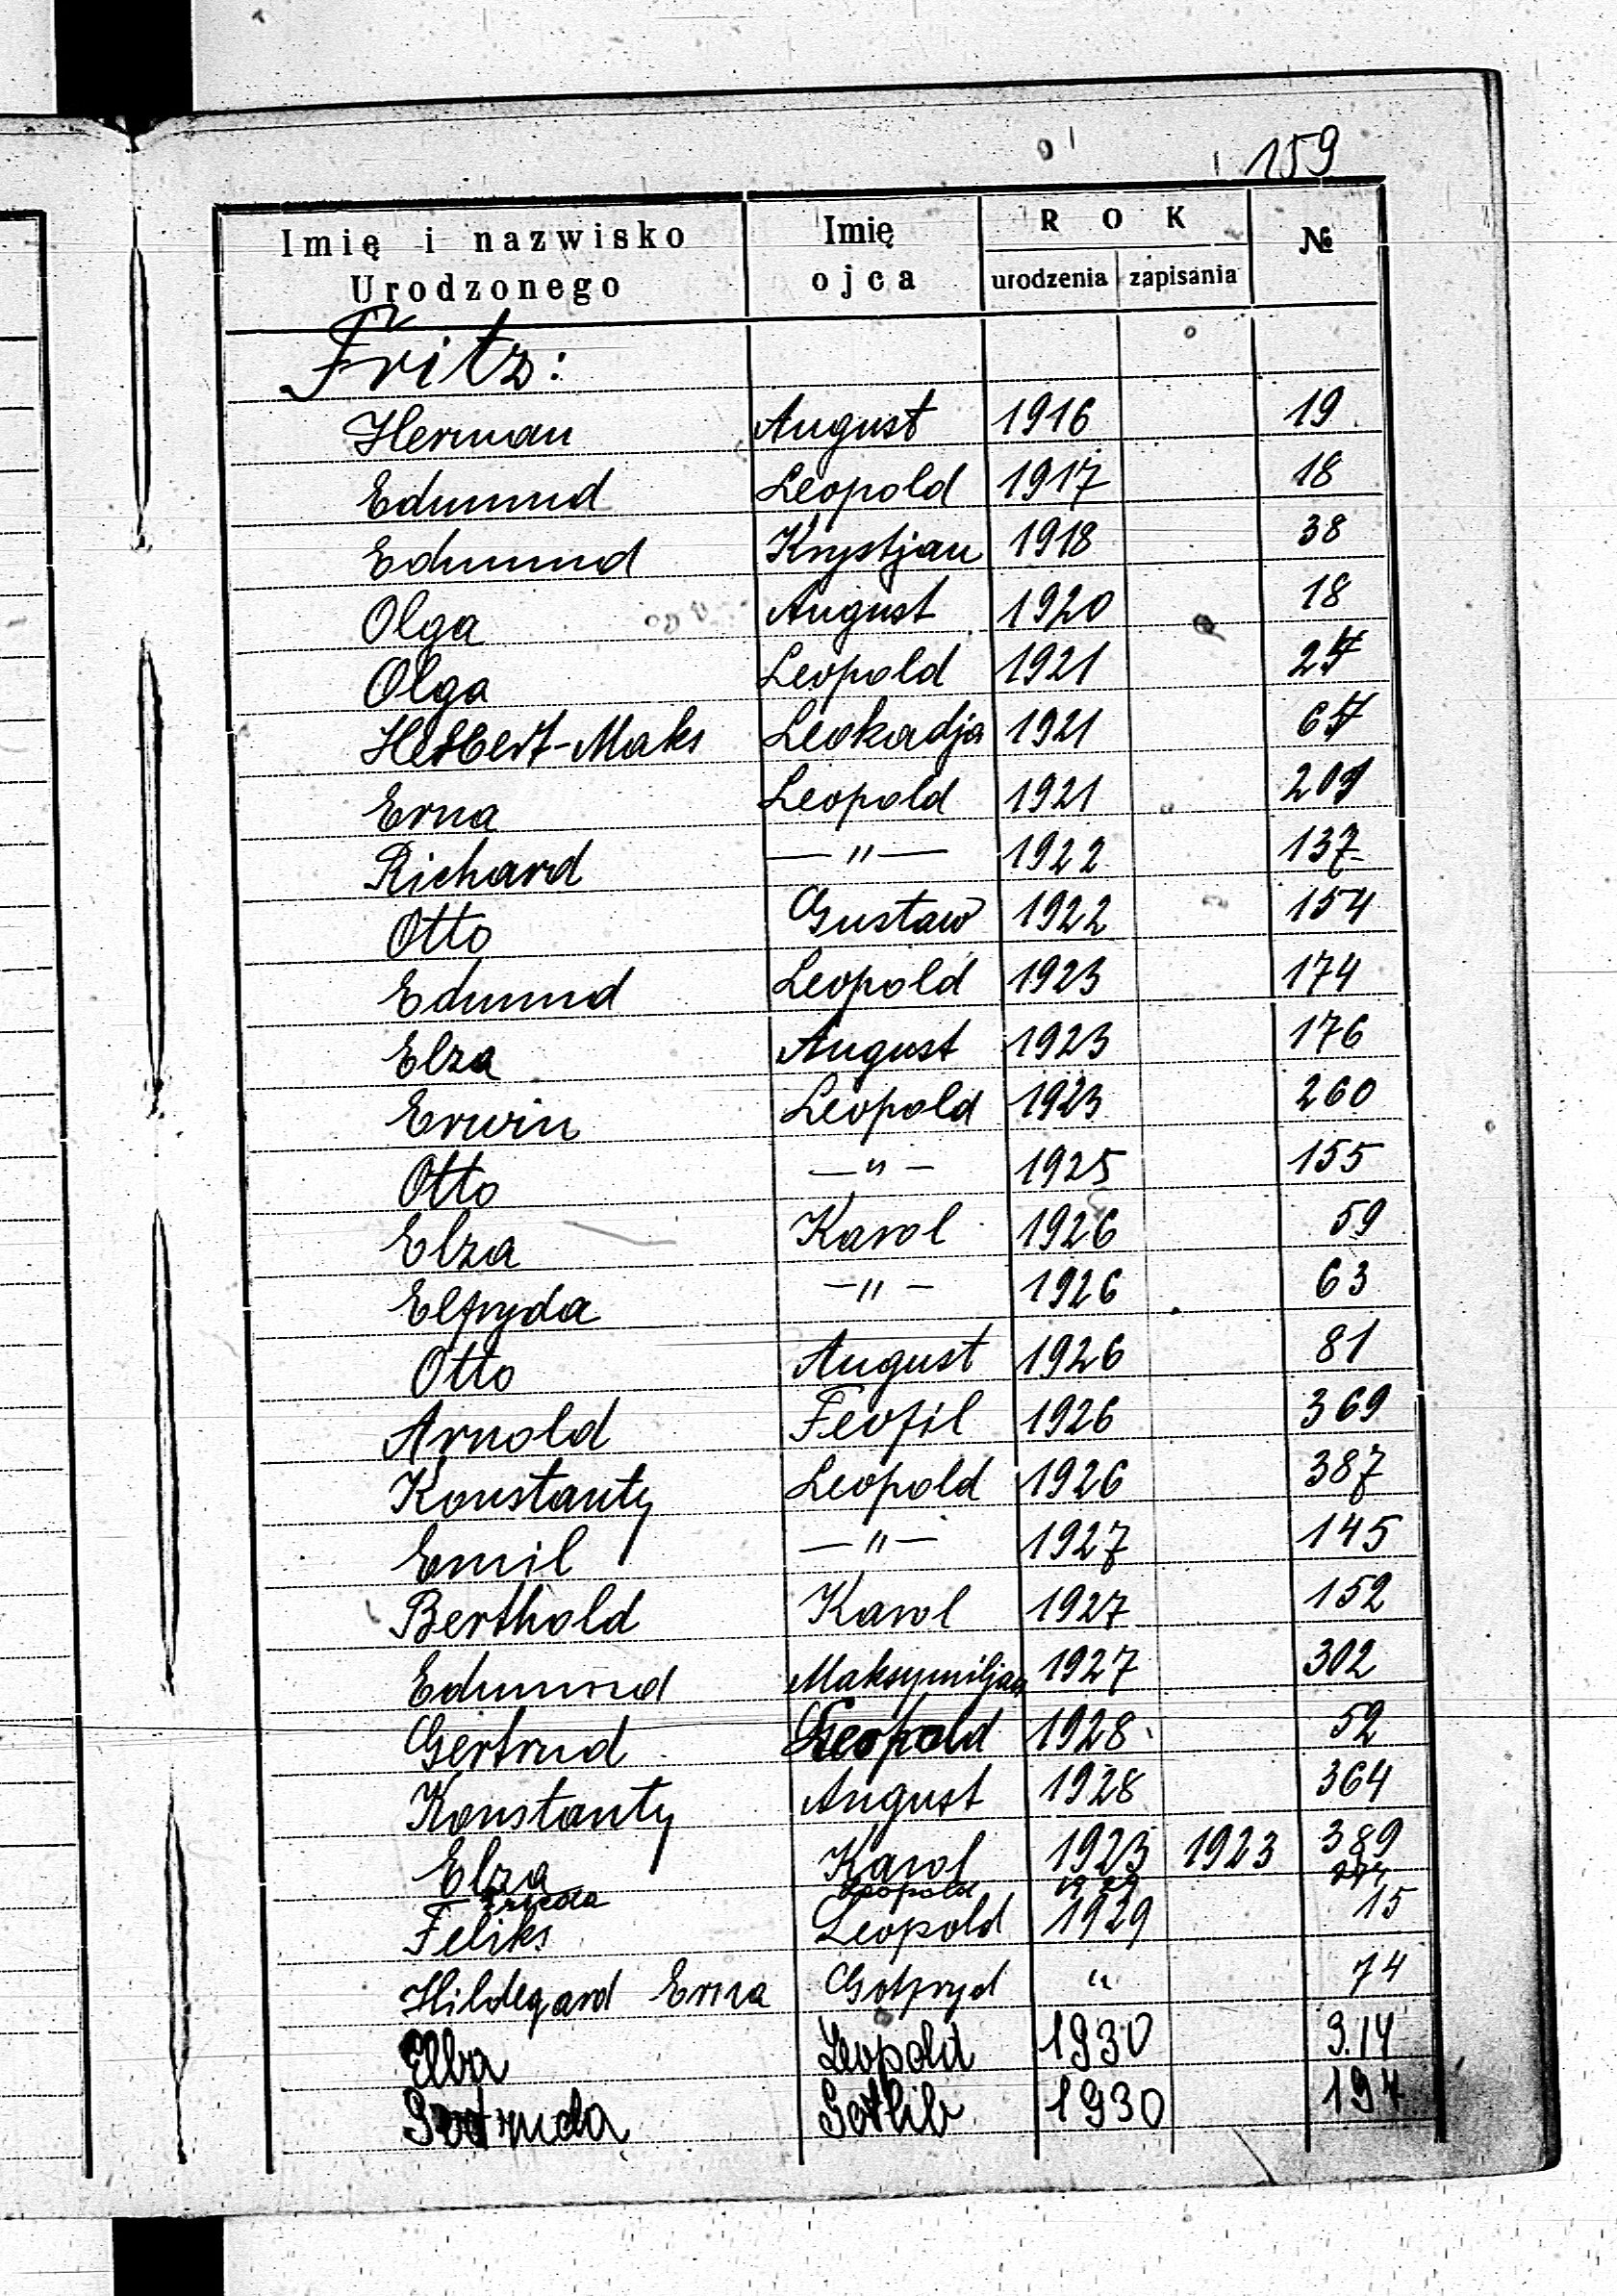 159
Imię i nazwisko Urodzonego Imię ojca ROK urodzenia zapisania №
Fritz:
Herman August 1916 19
Edmund Leopold 1917 18
Edmund Krystjan 1918 38
Olga August 1920 18
Olga Leopold 1921
Herbert-Maks Leokadja 1921
Erna Leopold 1921
Richard —"— 1922 137
Otto Gustaw 1922 154
Edmund Leopold 1923 174
Elza August 1923 176
Erwin Leopold 1923 260
Otto —"— 1925 155
Elza Karol 1926 59
Elfryda —"— 1926 63
Otto August 1926 81
Arnold Teofil 1926 369
Konstanty Leopold 1926 387
Emil —"— 1927 145
Berthold Karol 1927 152
Edmund Maksymiljan 1927 302
Gertrud Leopold 1928 52
Konstanty August 1928 364
Elza Karol 1923 1923 389
Frieda Leopold 1929
Feliks Leopold 1929 15
Hildegard Erna Gotfryd " 74
Leopold 1930
Gotlib 1930 194